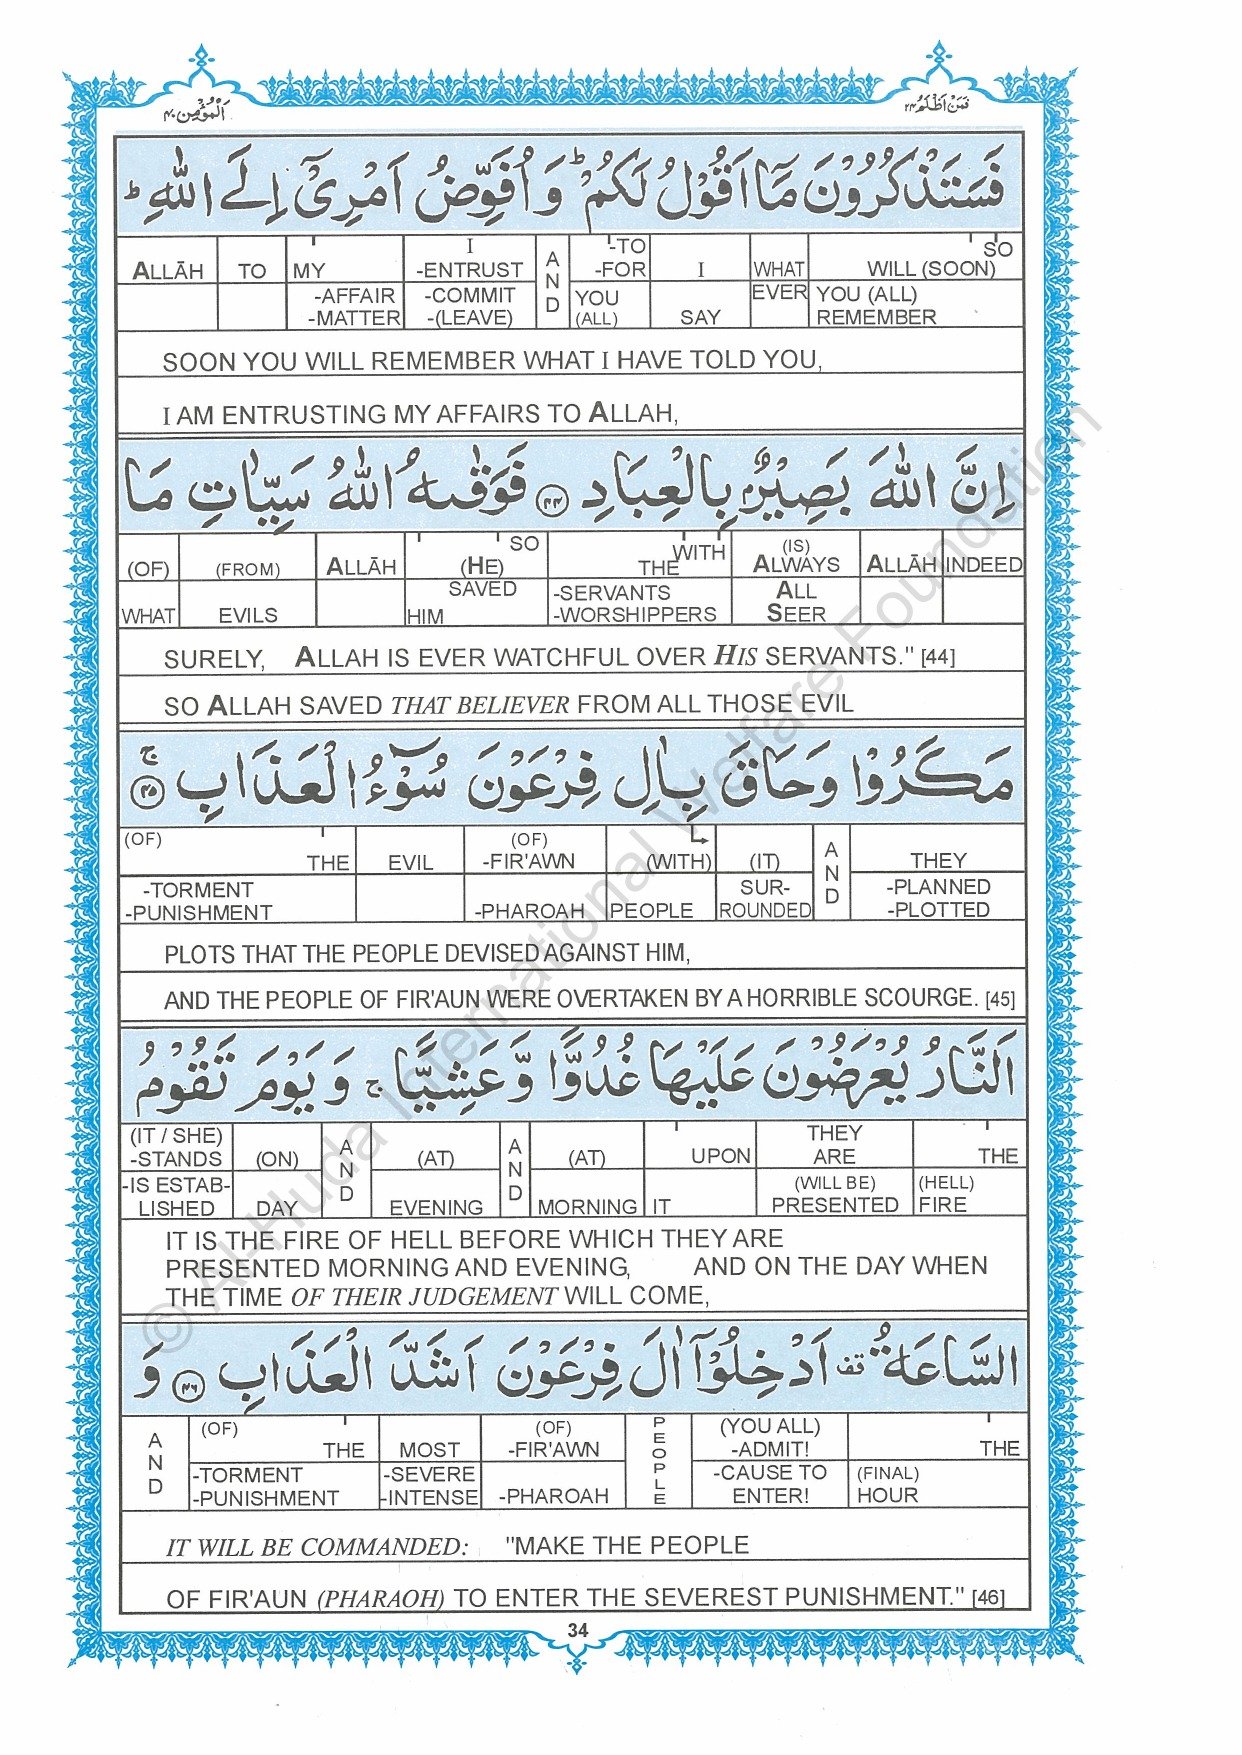 اَلْمُؤْمِن ٤٠
فَمَنْ اَظْلَمُ ٢٤
فَسَتَذْكُرُوْنَ مَاۤ اَقُوْلُ لَكُمْ ؕ وَ اُفَوِّضُ اَمْرِیْۤ اِلَى اللّٰهِ ؕ
ALLĀH TO MY I -ENTRUST AND -TO -FOR I WHAT SO WILL (SOON)
-AFFAIR -MATTER -COMMIT -(LEAVE) YOU (ALL) SAY EVER YOU (ALL) REMEMBER
SOON YOU WILL REMEMBER WHAT I HAVE TOLD YOU,
I AM ENTRUSTING MY AFFAIRS TO ALLAH,
اِنَّ اللّٰهَ بَصِیْرٌۢ بِالْعِبَادِ ﴿۴۴﴾ فَوَقٰىهُ اللّٰهُ سَیِّاٰتِ مَا
(OF) (FROM) ALLĀH SO (HE) WITH THE (IS) ALWAYS ALLĀH INDEED
WHAT EVILS SAVED HIM -SERVANTS -WORSHIPPERS ALL SEER
SURELY, ALLAH IS EVER WATCHFUL OVER HIS SERVANTS." [44]
SO ALLAH SAVED THAT BELIEVER FROM ALL THOSE EVIL
مَكَرُوْا وَ حَاقَ بِاٰلِ فِرْعَوْنَ سُوْٓءُ الْعَذَابِ ﴿۴۵﴾ ۚ
(OF) THE EVIL (OF) -FIR'AWN (WITH) (IT) AND THEY
-TORMENT -PUNISHMENT -PHAROAH PEOPLE SUR-ROUNDED -PLANNED -PLOTTED
PLOTS THAT THE PEOPLE DEVISED AGAINST HIM,
AND THE PEOPLE OF FIR'AUN WERE OVERTAKEN BY A HORRIBLE SCOURGE. [45]
اَلنَّارُ یُعْرَضُوْنَ عَلَیْهَا غُدُوًّا وَّ عَشِیًّا ۚ وَ یَوْمَ تَقُوْمُ
(IT / SHE) -STANDS (ON) AND (AT) AND (AT) UPON THEY ARE THE
-IS ESTAB-LISHED DAY EVENING MORNING IT (WILL BE) PRESENTED (HELL) FIRE
IT IS THE FIRE OF HELL BEFORE WHICH THEY ARE
PRESENTED MORNING AND EVENING, AND ON THE DAY WHEN
THE TIME OF THEIR JUDGEMENT WILL COME,
السَّاعَةُ ۫ اَدْخِلُوْۤا اٰلَ فِرْعَوْنَ اَشَدَّ الْعَذَابِ ﴿۴۶﴾ وَ
AND (OF) THE MOST (OF) -FIR'AWN PEOPLE (YOU ALL) -ADMIT! THE
-TORMENT -PUNISHMENT -SEVERE -INTENSE -PHAROAH -CAUSE TO ENTER! (FINAL) HOUR
IT WILL BE COMMANDED: "MAKE THE PEOPLE
OF FIR'AUN (PHARAOH) TO ENTER THE SEVEREST PUNISHMENT." [46]
34
© Al-Huda International Welfare Foundation